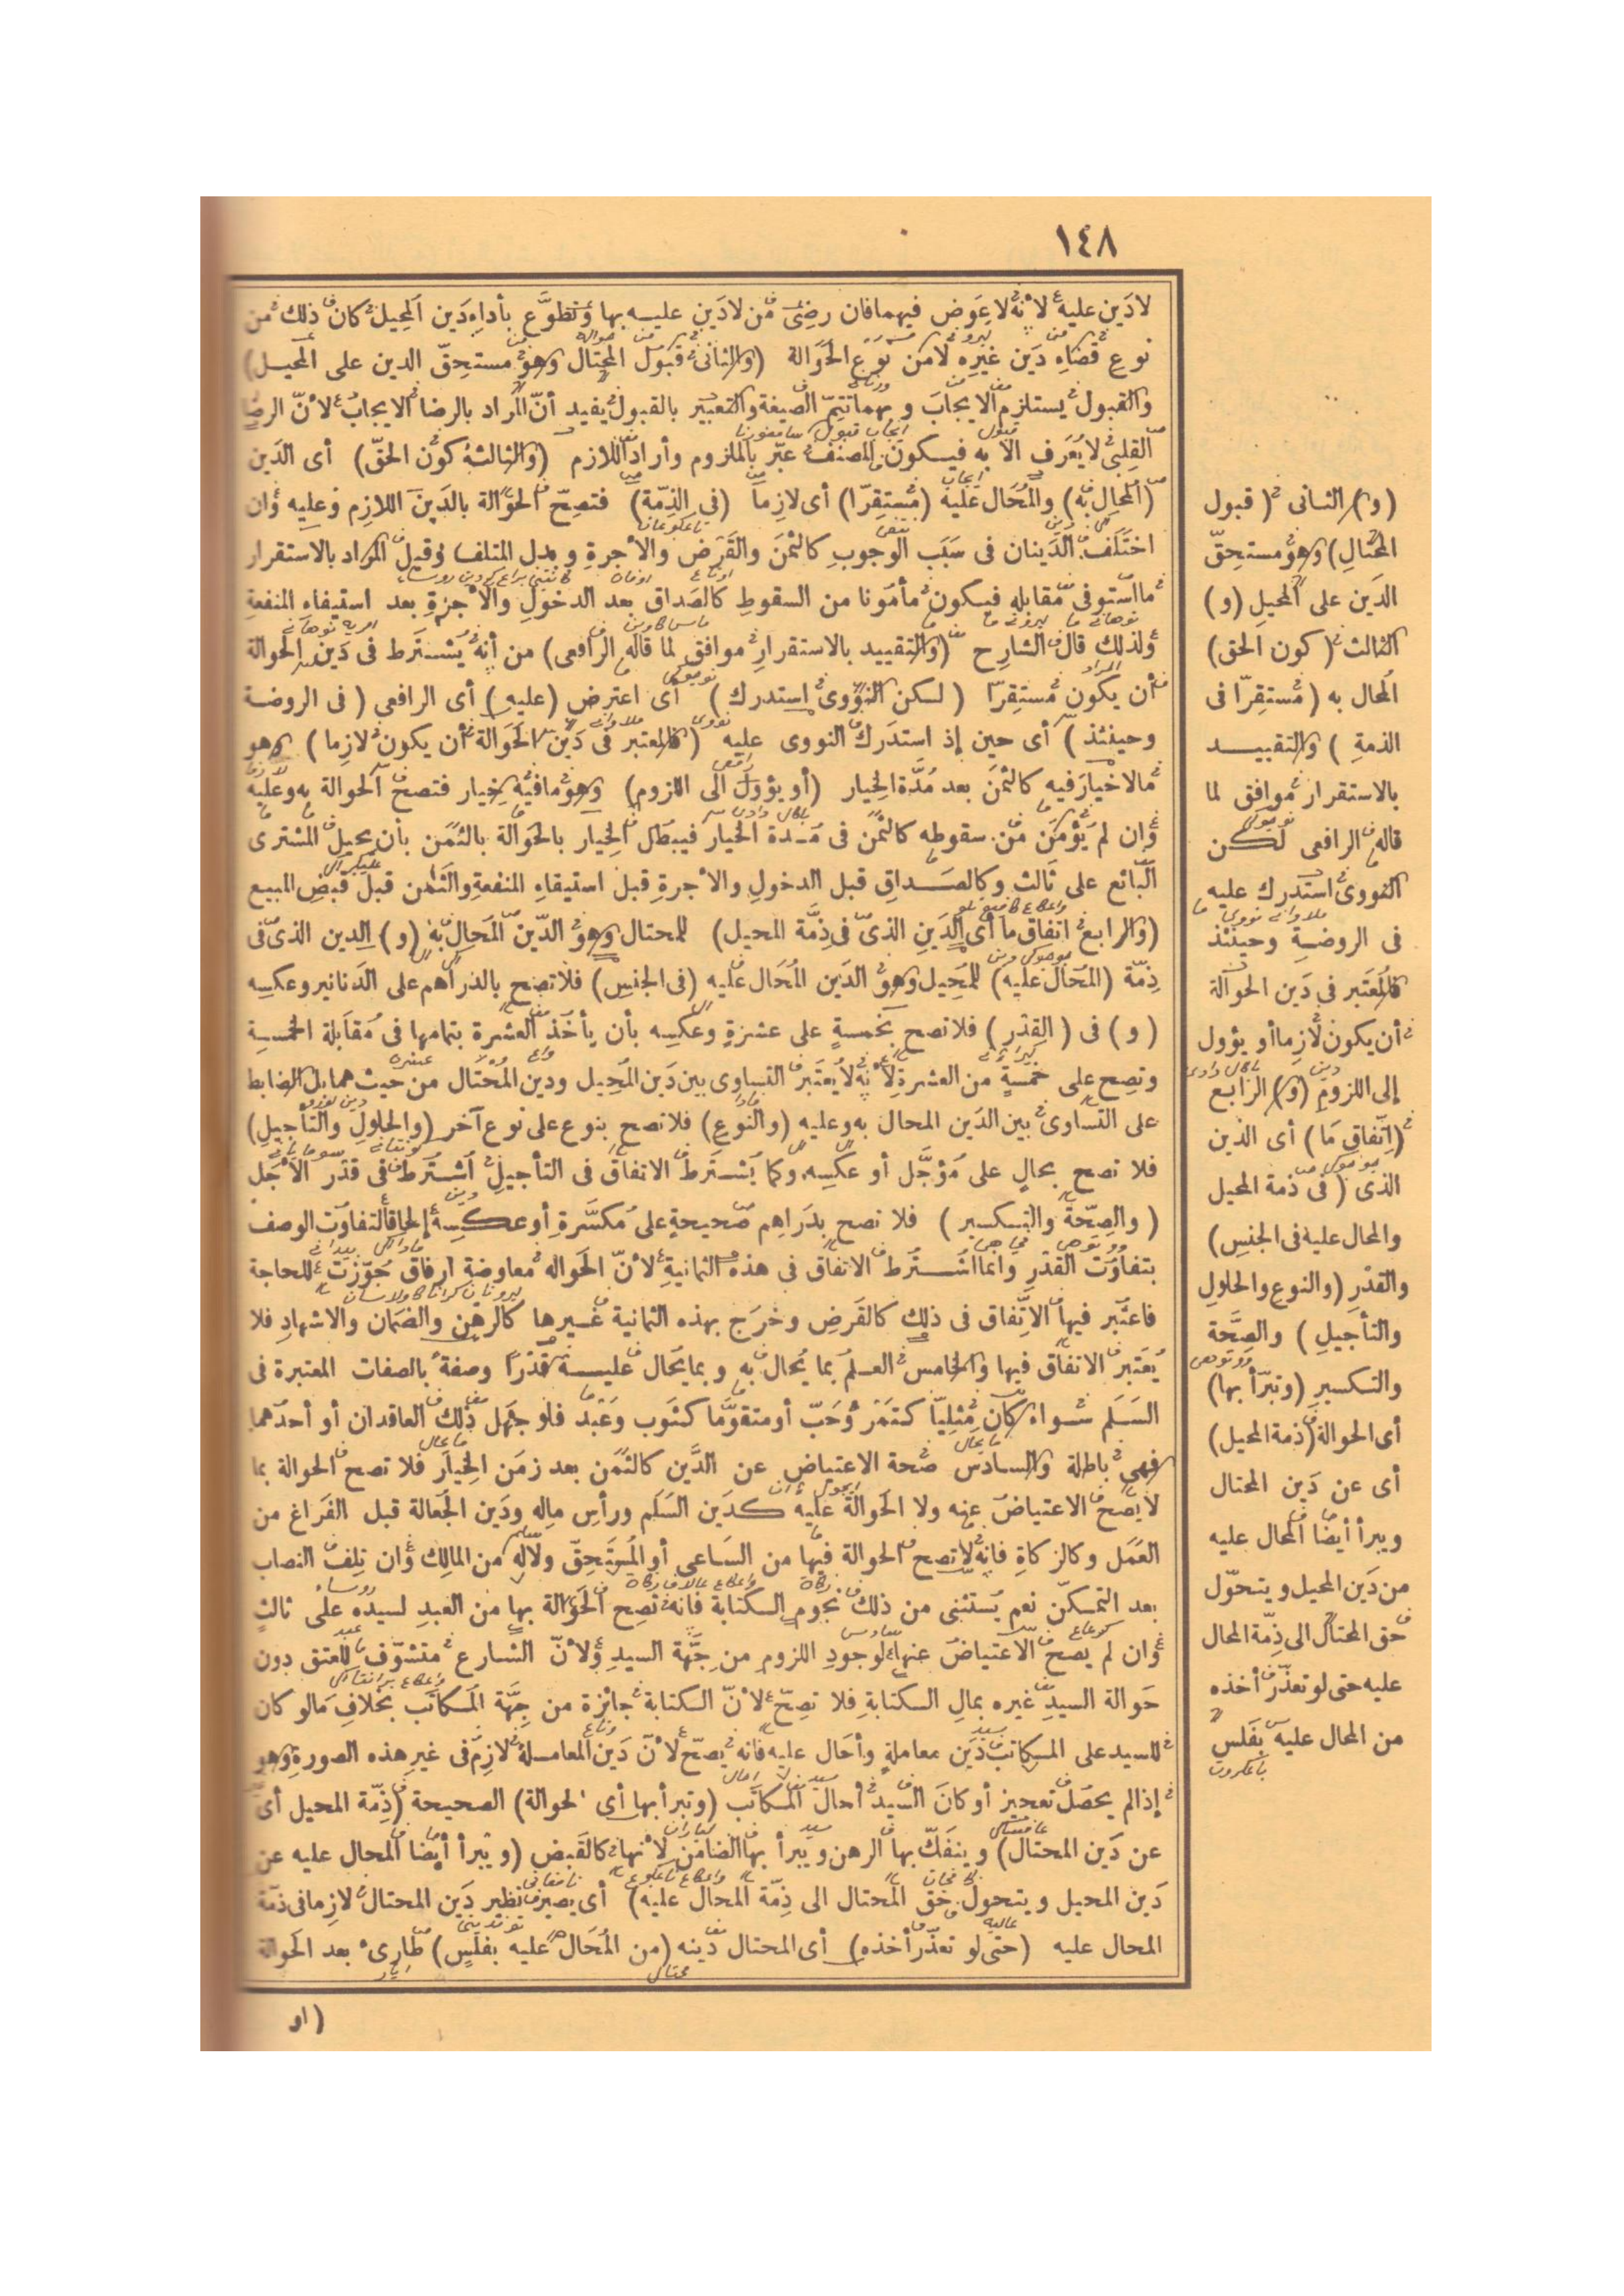 ١٤٨
لا دَين عليه لأنه لا عِوَض فيهما فان رضى من لا دَين عليه بها وتطوَّع بأداء دَين المحيل كان ذلك من
نوع قضاء دَين غيره لا من نوع الحَوَالة (والثانى قبول المحتال وهو مستحِقّ الدين على المحيل)
والقبول يستلزم الايجاب وبهما تتِمّ الصيغة والتعبير بالقبول يفيد أنّ المراد بالرضا الايجاب لأنّ الرضا
القلبى لا يُعرَف الا به فيكون المصنف عبّر بالملزوم وأراد اللازم (والثالثة كون الحقّ) أى الدَين
(المحال به) والمُحَال عليه (مُستقِرّا) أى لازما (فى الذمّة) فتصِحّ الحَوالة بالدَين اللازم وعليه وان
اختَلَف الدَينان فى سَبَب الوجوب كالثمَن والقَرْض والأجرة وبدل المتلف وقيل المراد بالاستقرار
ما استوفى مقابله فيكون مأمونا من السقوط كالصَداق بعد الدخول والأجرة بعد استيفاء المنفعة
ولذلك قال الشارح (والتقييد بالاستقرار موافق لما قاله الرافعى) من أنه يُشتَرط فى دَين الحوالة
أن يكون مُستقِرّا (لكن النوَوى استدرك) أى اعترض (عليه) أى الرافعى (فى الروضة
وحينئذ) أى حين إذ استَدرَك النووى عليه (فالمعتبر فى دَين الحَوَالة أن يكون لازما) وهو
ما لا خيار فيه كالثمَن بعد مُدَّة الخيار (أو يؤول الى اللزوم) وهو ما فيه خيار فتصحّ الحوالة به وعليه
وان لم يُؤمَن من سقوطه كالثمن فى مُدة الخيار فيبطل الخيار بالحَوَالة بالثمَن بأن يحيل المشترى
البائع على ثالث وكالصَداق قبل الدخول والأجرة قبل استيفاء المنفعة والثمن قبل قبض المبيع
(والرابع اتفاق ما) أى الدَين الذى فى ذِمَّة المحيل) للمحتال وهو الدَين المُحَال به (و) الدين الذى فى
ذِمّة (المُحَال عليه) للمُحِيل وهو الدَين المُحَال عليه (فى الجنس) فلا تصح بالدراهم على الدنانير وعكسه
(و) فى (القدْر) فلا تصح بخمسةٍ على عشرةٍ وعكسه بأن يأخذ العشرة بتمامها فى مُقابَلة الخمسة
وتصِح على خمسةٍ من العشرة لأنه لا يُعتَبر التساوى بين دَين المُحِيل ودين المُحتال من حيث هما بل الضابط
على التساوى بين الدَين المحال به وعليه (والنوع) فلا تصح بنوع على نوع آخر (والحلول والتأجيل)
فلا تصح بحالٍ على مُؤجَّل أو عكسه وكما يُشترَط الاتفاق فى التأجيل اُشترُط فى قدْر الأجَل
(والصِحّة والتكسير) فلا تصح بدَراهم صَحيحةٍ على مُكسَّرة أو عكسه إلحاقا لتفاوُت الوصف
بتفاوُت القدْر وانما اُشترُط الاتفاق فى هذه الثمانية لأنّ الحَوالة معاوضة ارفاق جُوّزت للحاجة
فاعتُبر فيها الاتّفاق فى ذلك كالقَرض وخَرَج بهذه الثمانية غيرها كالرهن والضَمان والاشهاد فلا
يُعتَبر الاتفاق فيها والخامس العلم بما يُحال به وبما يُحال عليه قدْرًا وصفةً بالصفات المعتبرة فى
السَلَم سواء كان مِثليّا كتَمْر وَحَبّ أو متقوَّما كثوب وَعَبْد فلو جَهِل ذلك العاقدان أو أحدهما
فهى باطلة والسادس صِحة الاعتياض عن الدَّين كالثمَن بعد زمَن الخيار فلا تصح الحوالة بما
لا يصح الاعتياض عنه ولا الحَوالة عليه كدَين السَلَم ورأس ماله ودَين الجَعالة قبل الفَراغ من
العَمَل وكالزكاة فانه لا تصح الحوالة فيها من السَاعى أو المُستَحِقّ ولا له من المالك وان تلِف النصاب
بعد التمكّن نعم يُستثنى من ذلك نجوم الكتابة فانه تصح الحَوَالة بها من العَبد لسيده على ثالث
وان لم يصح الاعتياض عنها لوجود اللزوم من جِهَّة السيد ولأنّ الشارع متشوّف للعتق دون
حَوالة السيد غيره بمال الكتابة فلا تصِحّ لأنّ الكتابة جائزة من جِهَّة المُكاتَب بخلاف مالو كان
للسيد على المكاتب دَين معاملةٍ وأحال عليه فانه يصحّ لأنّ دَين المعاملة لازم فى غير هذه الصورة وهو
إذا لم يحصُل تعجيز أو كان السيد أحال المكاتب (وتبرأ بها أى الحوالة) الصحيحة (ذِمّة المحيل أى
عن دَين المحتال) وينفَكّ بها الرهن ويبرأ بها الضامن لأنها كالقَبض (ويبرأ أيضا المحال عليه عن
دَين المحيل ويتحول حَقّ المُحتال الى ذِمّة المُحال عليه) أى يصير نظير دَين المحتال لازما فى ذمّة
المحال عليه (حتى لو تعذّر أخذه) أى المحتال دَينه (من المُحَال عليه بفَلَسٍ) طارئ بعد الحَوالة
(او
(و) الثانى (قبول
المُحتال) وهو مستحِقّ
الدَين على المحيل (و)
الثالث (كون الحق)
المُحال به (مُستقِرّا فى
الذمة) والتقييد
بالاستقرار موافق لما
قاله الرافعى لكن
النووى استدرك عليه
فى الروضة وحينئذ
فالمُعتَبر فى دَين الحوالة
أن يكون لازما أو يؤول
إلى اللزوم (و) الرابع
(اتّفاق مَا) أى الدَين
الذى (فى ذمة المحيل
والمحال عليه فى الجنس)
والقدْر (والنوع والحلول
والتأجيل) والصِحَّة
والتكسير (وتبرّأ بها)
أى الحوالة (ذمة المحيل)
أى عن دَين المحتال
ويبرأ أيضًا المحال عليه
من دَين المحيل ويتحوّل
حق المحتال الى ذِمّة المحال
عليه حتى لو تعذّر أخذه
من المحال عليه بفَلس